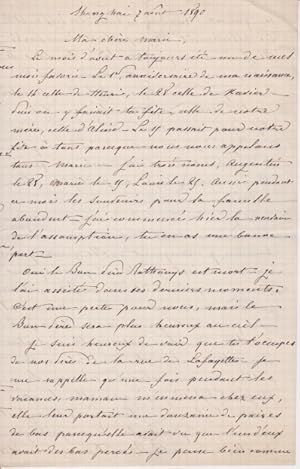 Shanghai 7 août 1890
Ma chère Marie,
Le mois d'août a toujours été un de mes
mois favoris. Le 1er anniversaire de ma naissance,
le 16 celle de Marie, le 28 celle de Xavier
puis on y faisait ta fête, celle de notre
mère, celle d'Alexis. Le 15 passait pour notre
fête à tous parceque nous nous appelons
tous Marie. J'ai trois noms, Augustin
le 28, Marie le 15, Louis le 25. Aussi pendant
ce mois les pour la famille
abondent. J'ai commencé hier la neuvaine
de l'assomption, tu en as une bonne
part.
Oui le Bon Père est mort. je
l'ai assisté dans ses derniers moments.
C'est une perte pour nous, mais le
Bon Père sera plus heureux au ciel.
Je suis heureux de voir que tu t'occupes
de nos pères de la rue de Lafayette. Je
me rappelle qu'une fois pendant les
vacances maman m'emmena chez eux,
elle leur portait une douzaine de paires
de bas parcequ'elle avait vu que l'un d'eux
avait des bas percés. Je pense bien comme